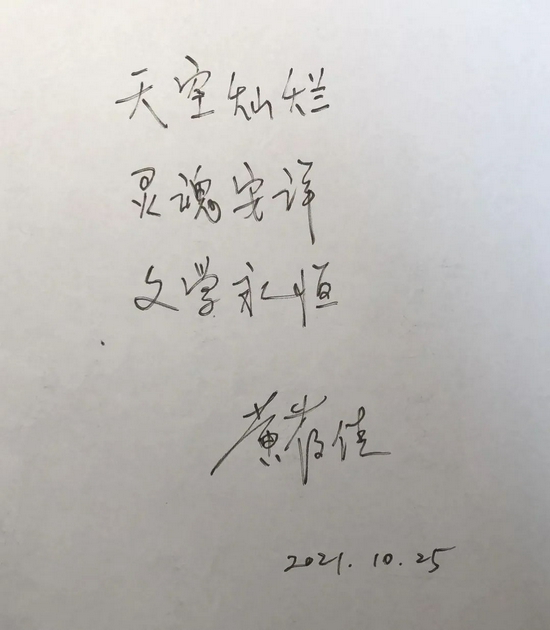 天空灿烂
灵魂安详
文学永恒
黄佳
2021.10.25